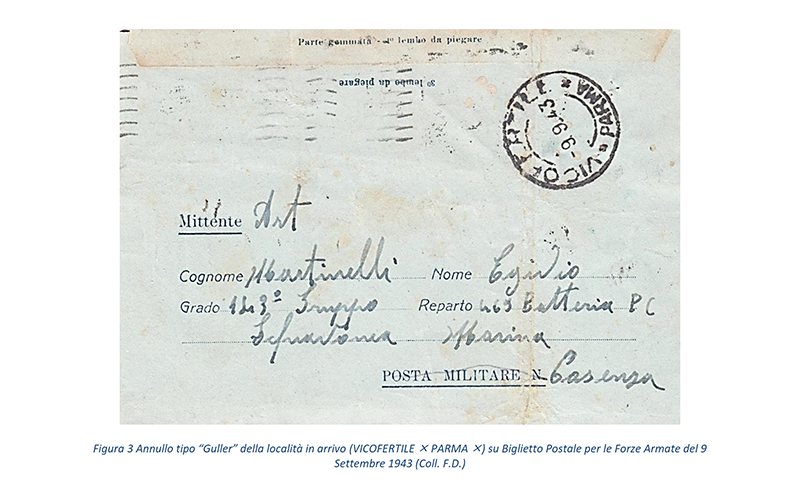 Parte gommata - 1° lembo da piegare
3° lembo da piegare
VICOFERTILE * PARMA *
9.9.43
Mittente Art
Cognome Martinelli Nome Egidio
Grado 143° Gruppo Reparto 469 Batteria PC
Marina
POSTA MILITARE N. Cosenza
Figura 3 Annullo tipo “Guller” della località in arrivo (VICOFERTILE ✕ PARMA ✕) su Biglietto Postale per le Forze Armate del 9
Settembre 1943 (Coll. F.D.)